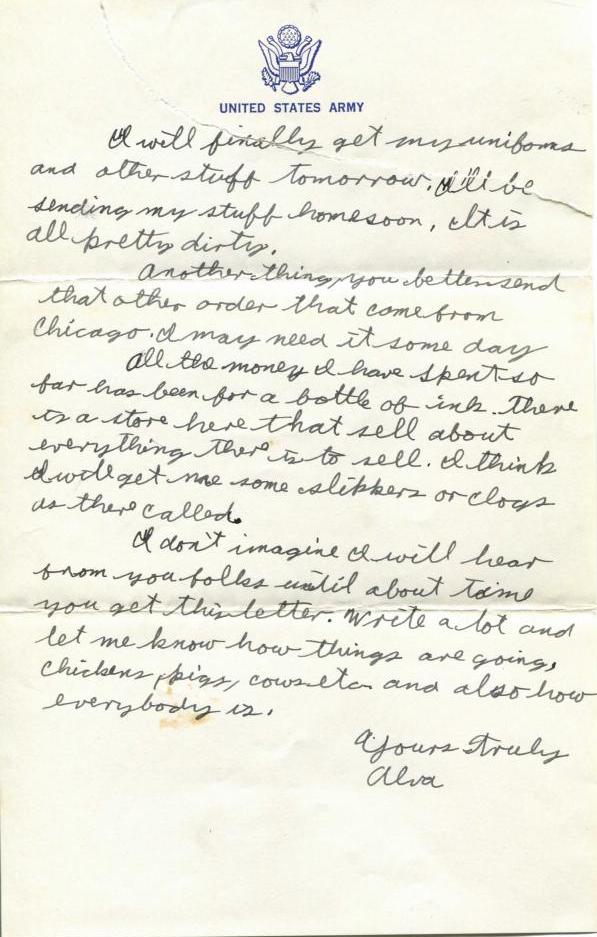 UNITED STATES ARMY
I will finally get my uniforms
and other stuff tomorrow. I'll be
sending my stuff home soon, It is
all pretty dirty.
Another thing, you better send
that other order that come from
Chicago. I may need it some day
All the money I have spent so
far has been for a bottle of ink. There
is a store here that sell about
everything there is to sell. I think
I will get me some slikkers or clogs
as there called.
I don't imagine I will hear
from you folks until about time
you get this letter. Write a lot and
let me know how things are going,
chickens, pigs, cows etc and also how
everybody is.
Yours Truly
Alva